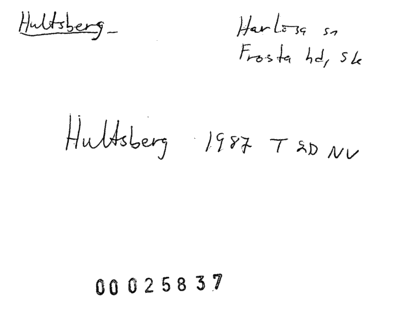 Hultsberg
Harlösa sn
Frosta hd, Sk
Hultsberg 1987 T 2D NV
00025837